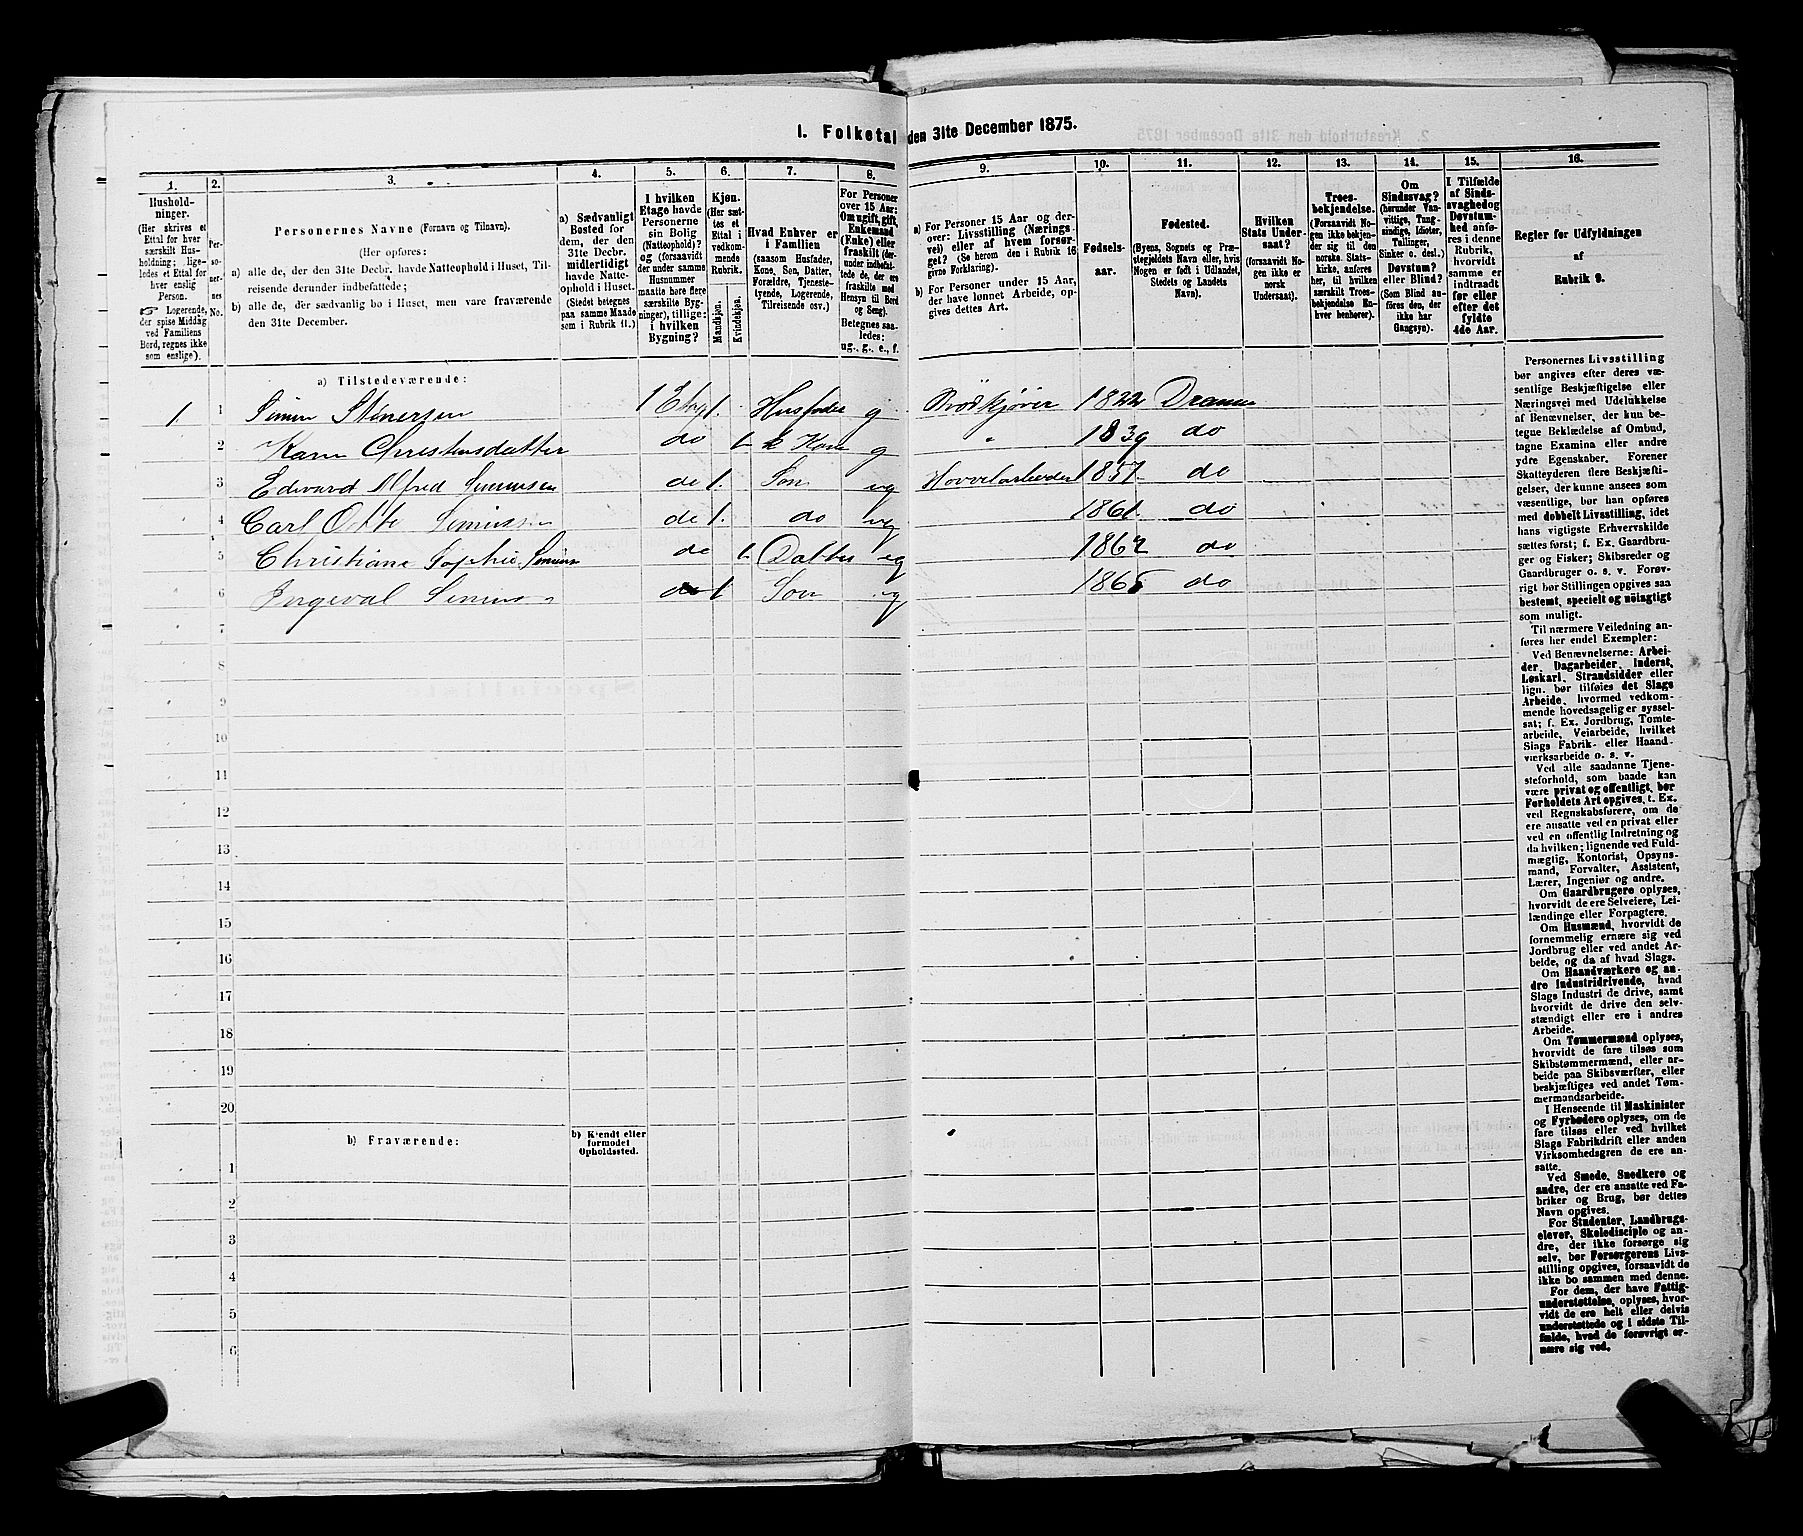 1. Folketal den 31te December 1875.
1. 2. 3. 4. 5. 6. 7. 8. 9. 10. 11. 12. 13. 14. 15. 16.
Hushold-
ninger.
(Her skrives et
Ettal for hver
særskilt Hus-
holdning; lige-
ledes et Ettal for
hver enslig
Person.
☞ Logerende,
der spise Middag
ved Familiens
Bord, regnes ikke
som enslige).
Per-
so-
ner-
nes
No.
Personernes Navne (Fornavn og Tilnavn).
(Her opføres:
a) alle de, der den 31te Decbr. havde Natteophold i Huset, Til-
reisende derunder indbefattede;
b) alle de, der sædvanlig bo i Huset, men vare fraværende
den 31te December.
a) Sædvanligt
Bosted for
dem, der den
31te Decbr.
midlertidigt
havde Natte-
ophold i Huset.
(Stedet betegnes
paa samme Maade
som i Rubrik 11.)
I hvilken
Etage havde
Personerne
sin Bolig
(Natteophold)?
og (forsaavidt
der under samme
Husnummer
maatte høre flere
særskilte Byg-
ninger), tillige:
i hvilken
Bygning?
Kjøn.
(Her sæt-
tes et
Ettal i
vedkom-
mende
Rubrik.
Mandkjøn.
Kvindekjøn.
Hvad Enhver er
i Familien
(saasom Husfader,
Kone, Søn, Datter,
Forældre, Tjeneste-
tyende, Logerende,
Tilreisende osv.)
For Personer
over 15 Aar:
Om ugift, gift,
Enkemand
(Enke) eller
fraskilt (der-
under indbefat-
tede de, der ere
fraskilte med
Hensyn til Bord
og Seng).
Betegnes saa-
ledes:
ug., g., e., f.
a) For Personer 15 Aar og der-
over: Livsstilling (Nærings-
vei) eller af hvem forsør-
get? (Se herom den i Rubrik 16
givne Forklaring).
b) For Personer under 15 Aar,
der have lønnet Arbeide, op-
gives dettes Art.
Fødsels-
aar.
Fødested.
(Byens, Sognets og Præ-
stegjeldets Navn eller, hvis
Nogen er født i Udlandet,
Stedets og Landets
Navn).
Hvilken
Stats Under-
saat?
(forsaavidt No-
gen ikke er
norsk
Undersaat).
Troes-
bekjendelse.
(Forsaavidt No-
gen ikke bekjen-
der sig til den
norske Stats-
kirke, anføres
her, til hvilken
særskilt Troes-
bekjendelse En-
hver henhører).
Om
Sindssvag?
(herunder Van-
vittige, Tung-
sindige, Idioter,
Tullinger,
Sinker o. desl.)
Døvstum?
eller Blind?
(Som Blind an-
føres den, der
ikke har
Gangsyn).
I Tilfælde
af Sinds-
svaghed og
Døvstum-
hed anfø-
res i denne
Rubrik,
hvorvidt
samme er
indtraadt
før eller
efter det
fyldte
4de Aar.
Regler for Udfyldningen
af
Rubrik 9.
a) Tilstedeværende:
1. 1 Simen Simersen 1 Etag 1. Husfader g Brödkjörer 1822 Drammen
2 Karen Christensdatter do 1. Kone g " 1839 do
3 Edevard Alfred Simensen do 1. Søn ug Høvelarbeider 1857 do
4 Carl Otto Simensen do 1. do ug 1861 do
5 Christiane Sophie Simens do 1. Datter ug 1862 do
6 Ingeval Simens do 1 Søn ug 1865 do
7
8
9
10
11
12
13
14
15
16
17
18
19
20
b) Fraværende:
b) Kjendt eller
formodet
Opholdssted.
1
2
3
4
5
6
Personernes Livsstilling
bør angives efter deres væ-
sentlige Beskjæftigelse eller
Næringsvei med Udelukkelse
af Benævnelser, der kun be-
tegne Beklædelse af Ombud,
tagne Examina eller andre
ydre Egenskaber. Forener
Skatteyderen flere Beskjæfti-
gelser, der kunne ansees som
væsentlige, bør han opføres
med dobbelt Livsstilling, idet
hans vigtigste Erhvervskilde
sættes først; f. Ex. Gaardbru-
ger og Fisker; Skibsreder og
Gaardbruger o. s. v. Forøv-
rigt bør Stillingen opgives saa
bestemt, specielt og nøiagtigt
som muligt.
Til nærmere Veiledning an-
føres her endel Exempler:
Ved Benævnelserne: Arbei-
der, Dagarbeider, Inderst,
Løskarl, Strandsidder eller
lign. bør tilføies det Slags
Arbeide, hvormed vedkom-
mende hovedsagelig er syssel-
sat; f. Ex. Jordbrug, Tomte-
arbeide, Veiarbeide, hvilket
Slags Fabrik- eller Haand-
værksarbeide o. s. v.
Ved alle saadanne Tjene-
steforhold, som baade kan
være privat og offentligt, bør
Forholdets Art opgives, t. Ex.
ved Regnskabsførere, om de
ere ansatte ved en privat eller
ved en offentlig Indretning og
da hvilken; lignende ved Fuld-
mægtig, Kontorist, Opsyns-
mand, Forvalter, Assistent,
Lærer, Ingeniør og andre.
Om Gaardbrugere oplyses,
hvorvidt de ere Selveiere, Lei-
lændinge eller Forpagtere.
Om Husmænd, hvorvidt de
fornemmelig ernære sig ved
Jordbrug eller ved andet Ar-
beide, og da af hvad Slags.
Om Haandværkere og an-
dre Industridrivende, hvad
Slags Industri de drive, samt
hvorvidt de drive den selv-
stændigt eller ere i andres
Arbeide.
Om Tømmermænd oplyses,
hvorvidt de fare tilsøs som
Skibstømmermænd, eller ar-
beide paa Skibsværfter, eller
beskjæftiges ved andet Tøm-
mermandsarbeide.
I Henseende til Maskinister
og Fyrbødere oplyses, om de
fare tilsøs eller ved hvilket
Slags Fabrikdrift eller anden
Virksomhedsgren de ere an-
satte.
Ved Smede, Snedkere og
andre, der ere ansatte ved Fa-
briker og Brug, bør dettes
Navn opgives.
For Studenter, Landbrugs-
elever, Skoledisciple og an-
dre, der ikke forsørge sig
selv, bør Forsørgerens Livs-
stilling opgives, forsaavidt de
ikke bo sammen med denne.
For dem, der have Fattig-
understøttelse, oplyses, hvor-
vidt de ere helt eller delvis
understøttede og i sidste Til-
fælde, hvad de forøvrigt er-
nære sig ved.